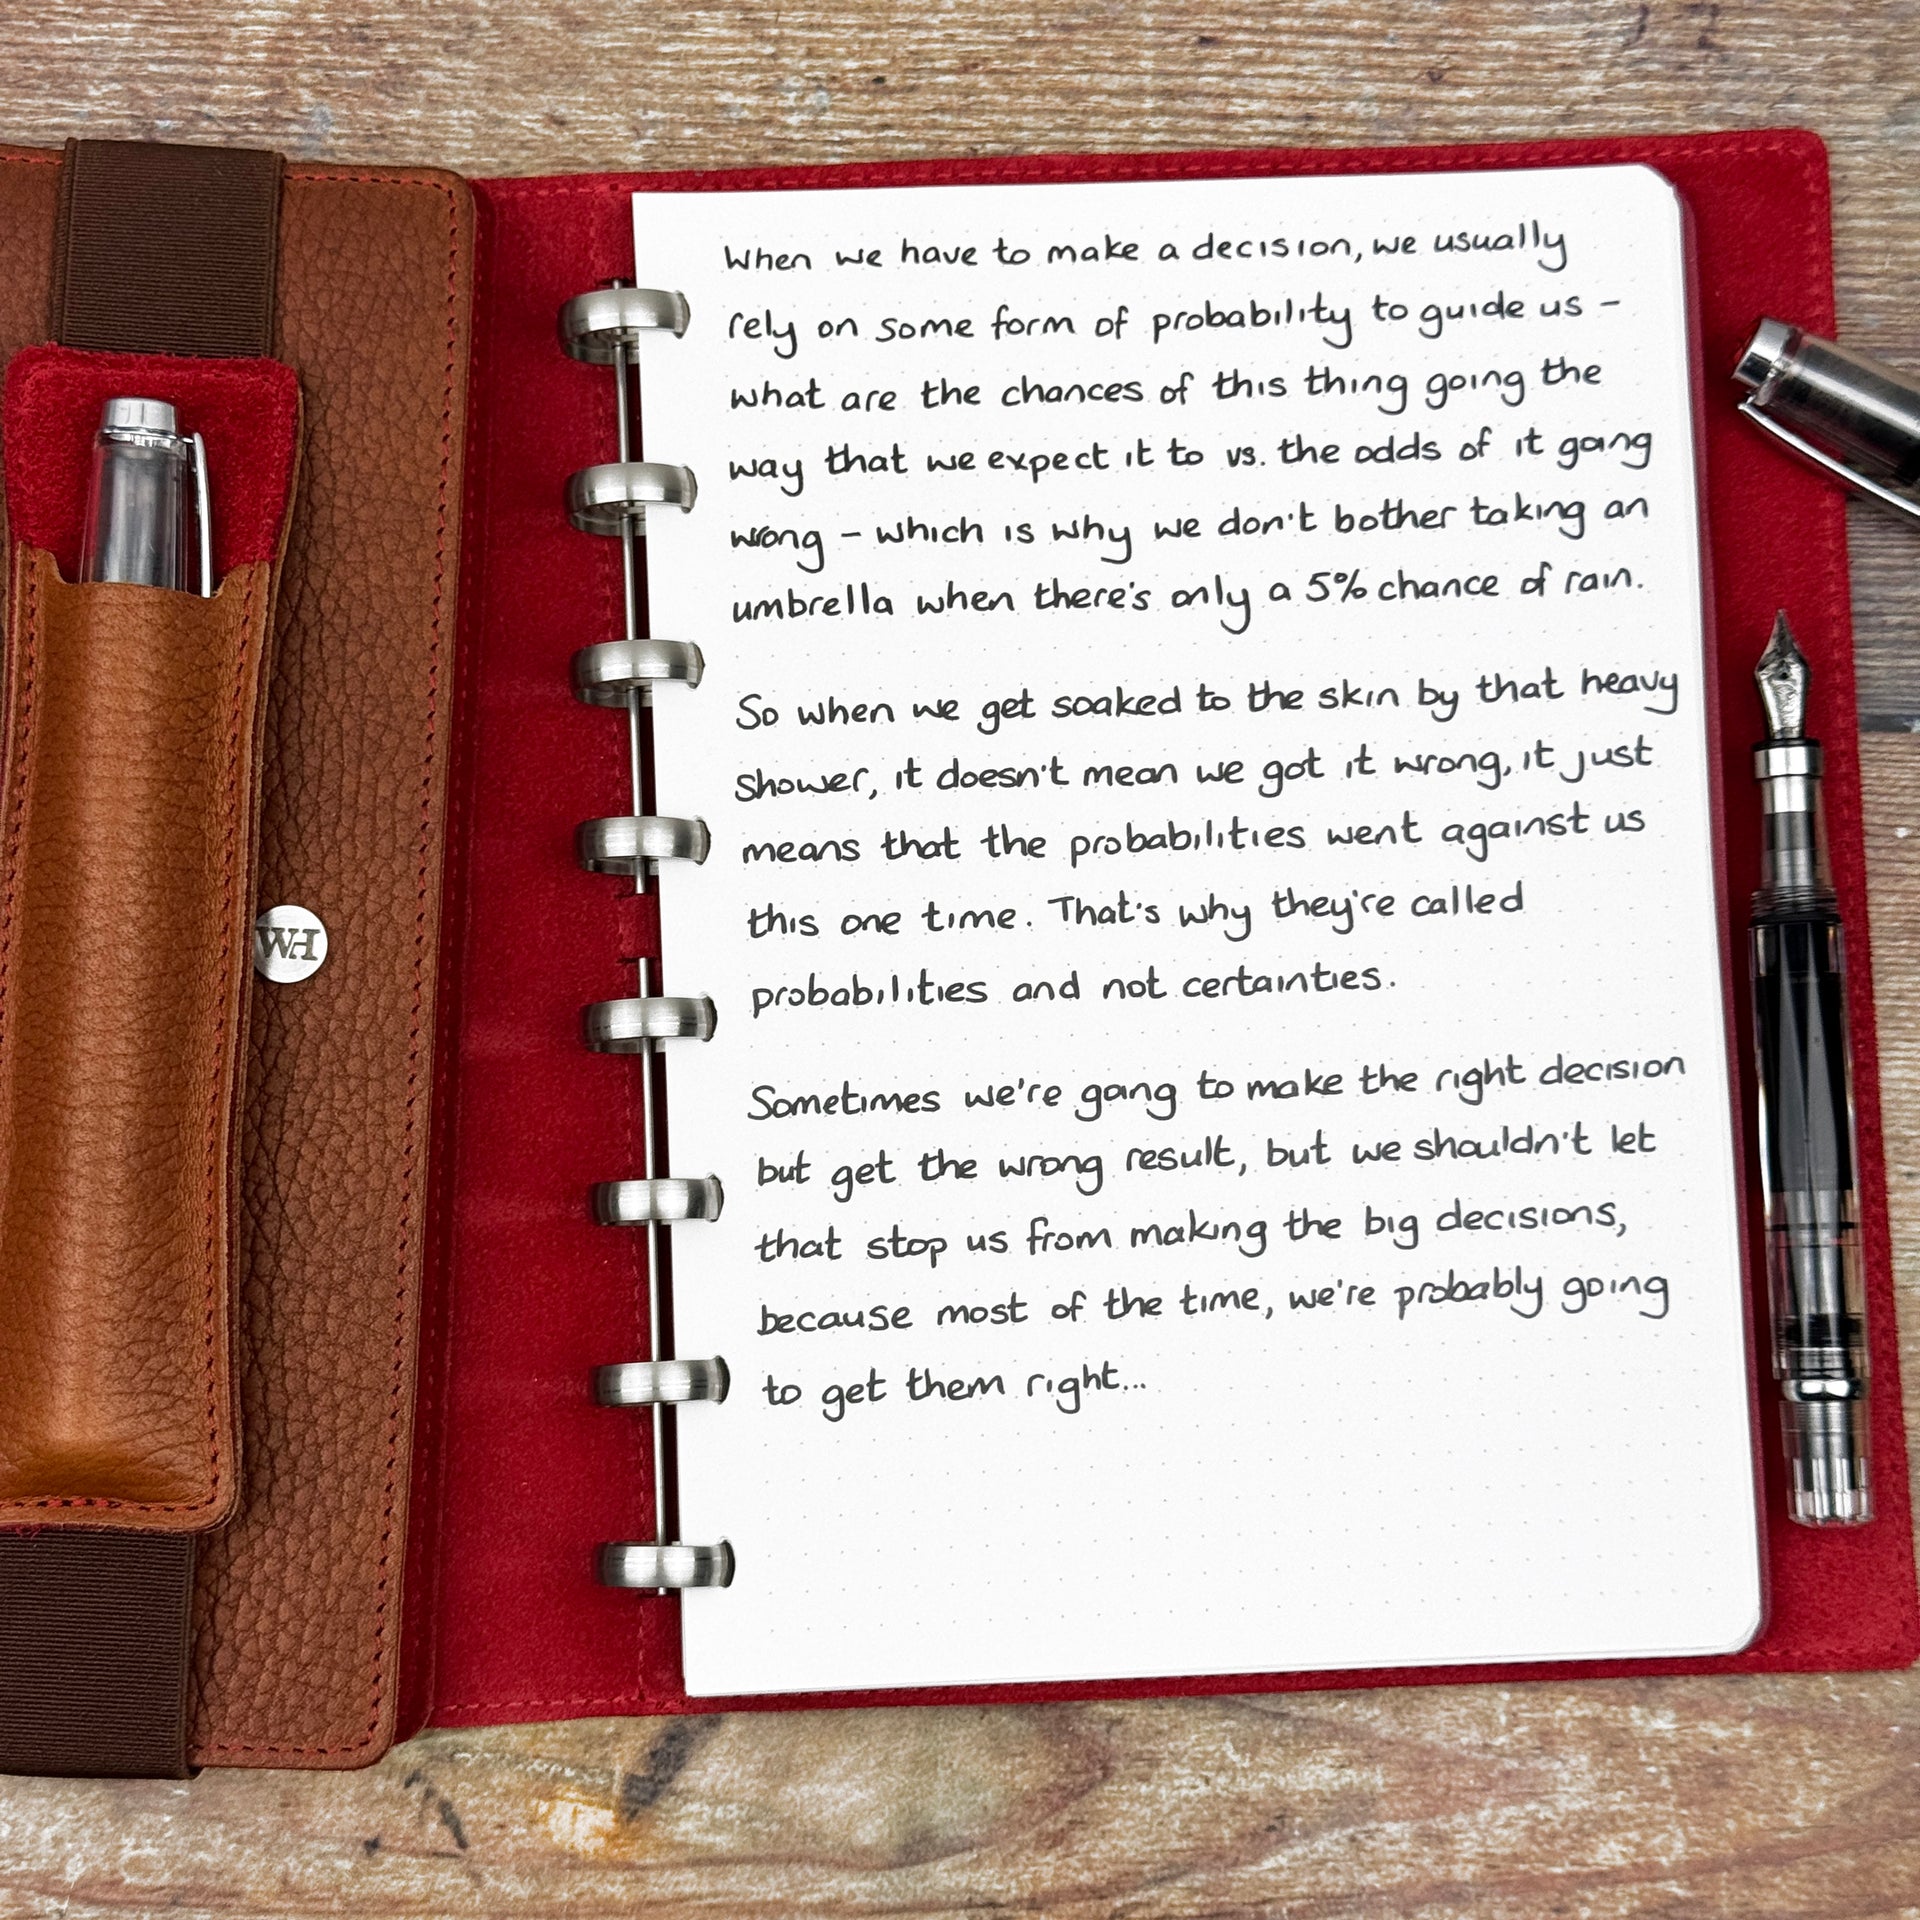 When we have to make a decision, we usually
rely on some form of probability to guide us –
what are the chances of this thing going the
way that we expect it to vs. the odds of it going
wrong – which is why we don't bother taking an
umbrella when there's only a 5% chance of rain.
So when we get soaked to the skin by that heavy
shower, it doesn't mean we got it wrong, it just
means that the probabilities went against us
this one time. That's why they're called
probabilities and not certainties.
Sometimes we're going to make the right decision
but get the wrong result, but we shouldn't let
that stop us from making the big decisions,
because most of the time, we're probably going
to get them right...
WH